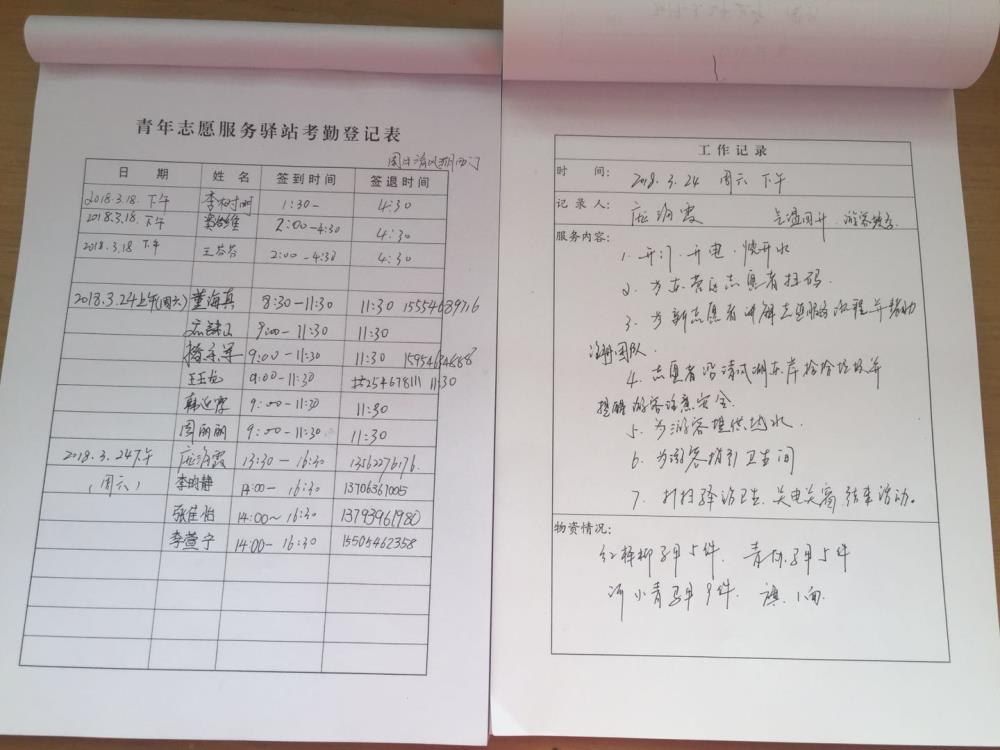 青年志愿服务驿站考勤登记表
清风湖西门
日期 姓名 签到时间 签退时间
2018.3.18. 下午 李 1:30- 4:30
2018.3.18. 下午 维 2:00-4:30 4:30
2018.3.18 下午 王芬芬 2:00-4:30 4:30
2018.3.24上午(周六) 董海真 8:30-11:30 11:30 15554689716
9:00-11:30 11:30
9:00-11:30 11:30
王玉龙 9:00-11:30 11:30
韩 9:00-11:30 11:30
周丽丽 9:00-11:30 11:30
2018.3.24下午 庞海霞 13:30-16:30 13562276176.
(周六) 李昀静 14:00- 16:30 13706361005
张佳怡 14:00~16:30 13793961980
李萱宁 14:00-16:30 15505462358
工作记录
时间: 2018.3.24 周六 下午
记录人: 庞海霞 气温回升,游客较多.
服务内容:
1. 开门、开电、烧开水
2. 为东营区志愿者扫码
3. 为新志愿者讲解志愿服务流程并帮助
注册团队.
4. 志愿者沿清风湖东岸捡拾垃圾并
提醒游客注意安全.
5. 为游客提供热水.
6. 为游客指引卫生间
7. 打扫驿站卫生、关电关窗,结束活动。
物资情况:
红柽柳马甲5件、 青 马甲5件
河小青马甲9件. 旗.1面.